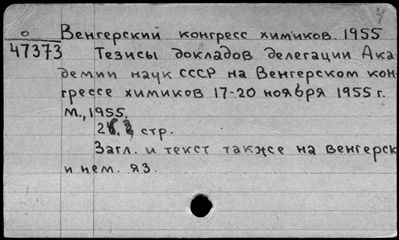 о Венгерский конгресс химиков. 1955
47373 Тезисы докладов делегации Ака
демии наук СССР на Венгерском кон
грессе химиков 17-20 ноября 1955 г.
М., 1955.
стр.
Загл. и текст также на венгерск
и нем. яз.